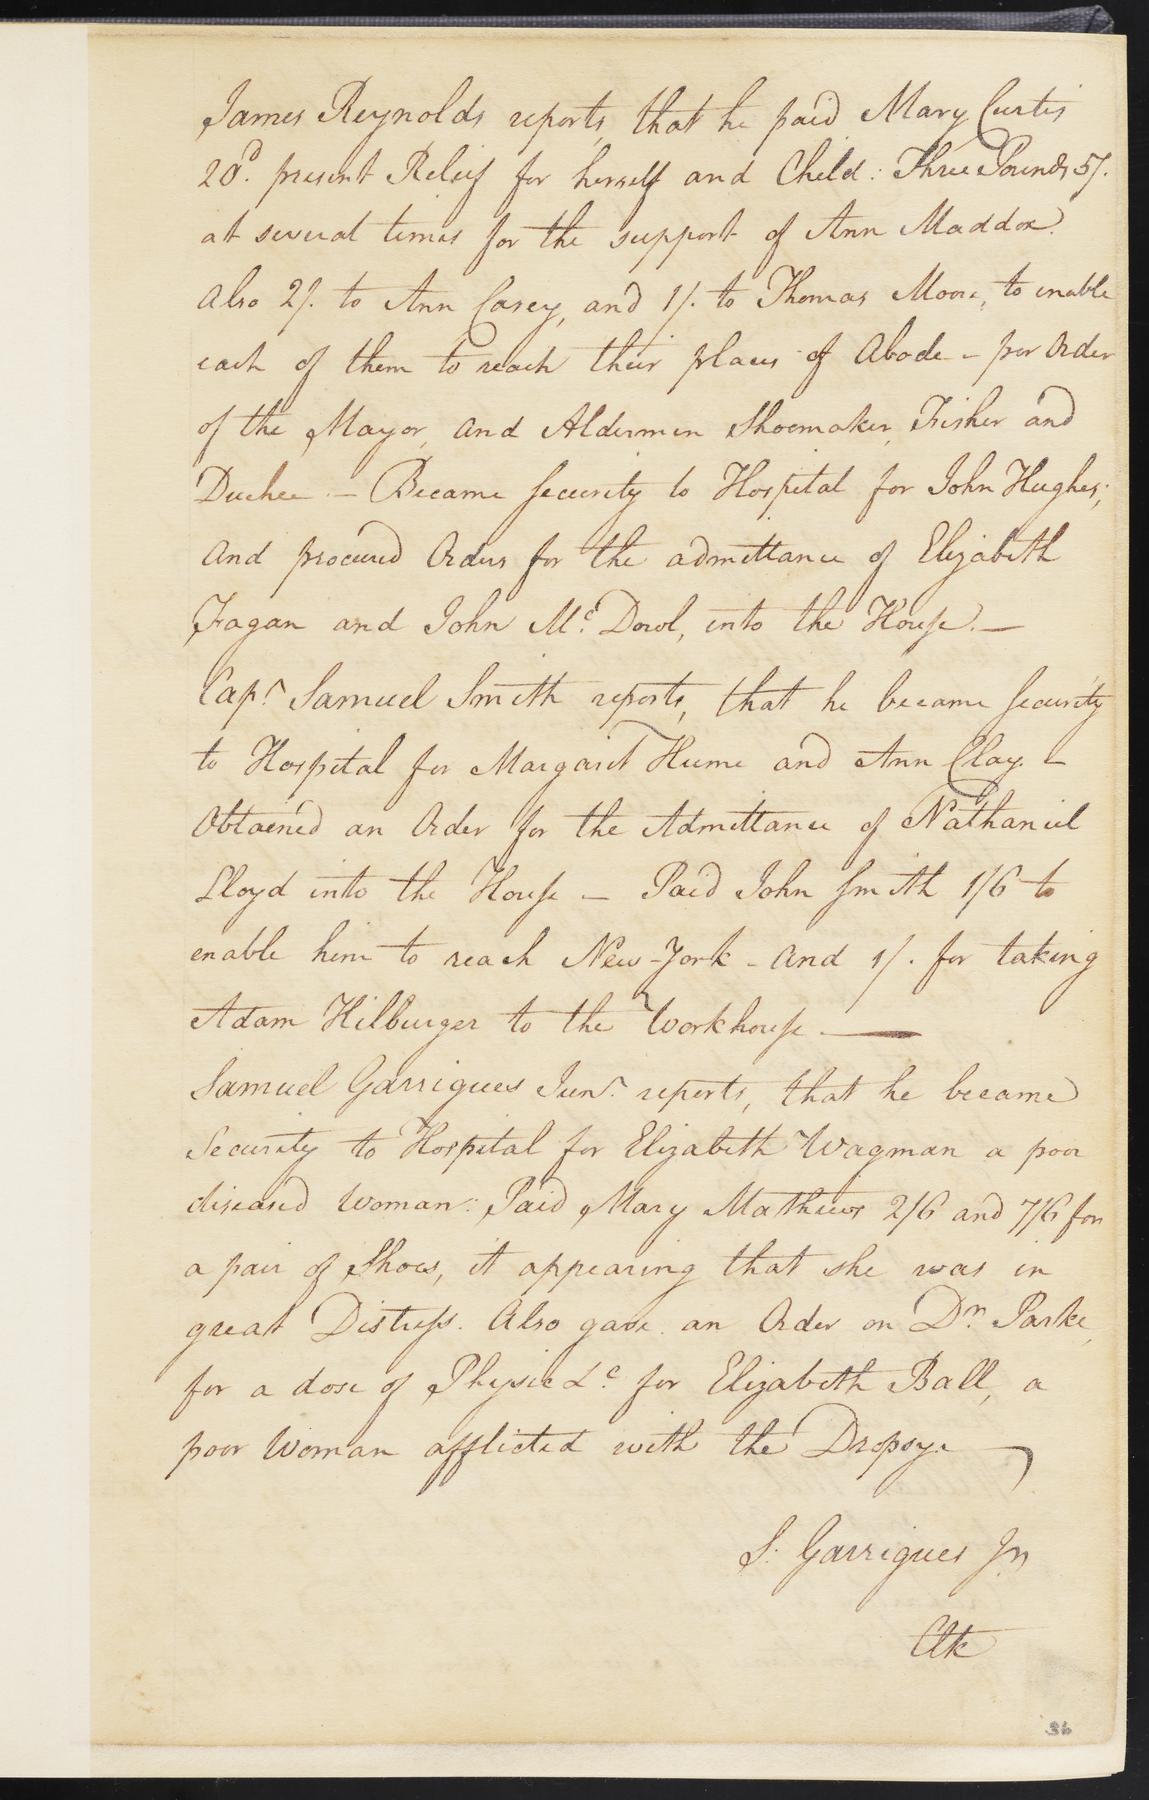 James Reynolds reports, that he paid Mary Curtis
20d. present Relief for herself and Child: Three Pounds 5/.
at several times for the support of Ann Maddox.
Also 2/. to Ann Carey, and 1/. to Thomas Moore, to enable
each of them to reach their places of Abode – per Order
of the Mayor, and Aldermen Shoemaker, Fisher and
Duchee. – Became Security to Hospital for John Hughes;
And procured Orders for the admittance of Elizabeth
Fagan and John Mc. Dowl, into the House. —
Capt. Samuel Smith reports, that he became Security
to Hospital for Margaret Hume and Ann Clay. –
Obtained an Order for the Admittance of Nathaniel
Lloyd into the House – Paid John Smith 1/6 to
enable him to reach New-York – And 1/. for taking
Adam Hilburger to the Workhouse. —
Samuel Garrigues Junr. reports, that he became
Security to Hospital for Elizabeth Wagman a poor
diseased Woman: Paid Mary Mathews 2/6 and 7/6 for
a pair of Shoes, it appearing that she was in
great Distress. Also gave an Order on Dr. Parke,
for a dose of Physic &c. for Elizabeth Ball, a
poor Woman afflicted with the Dropsy. —
S. Garrigues Jr
Clk
36